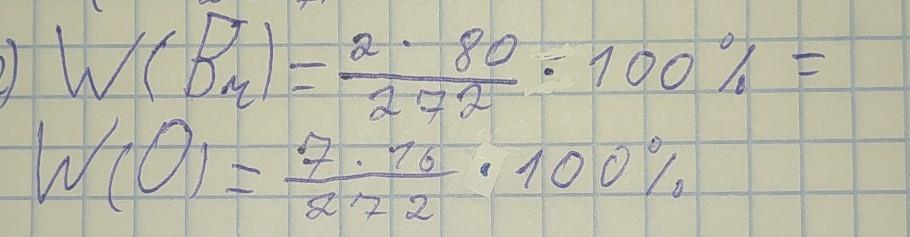 ) W(Br) = 2 · 80 / 272 · 100 % =
W(O) = 7 · 16 / 272 · 100 %